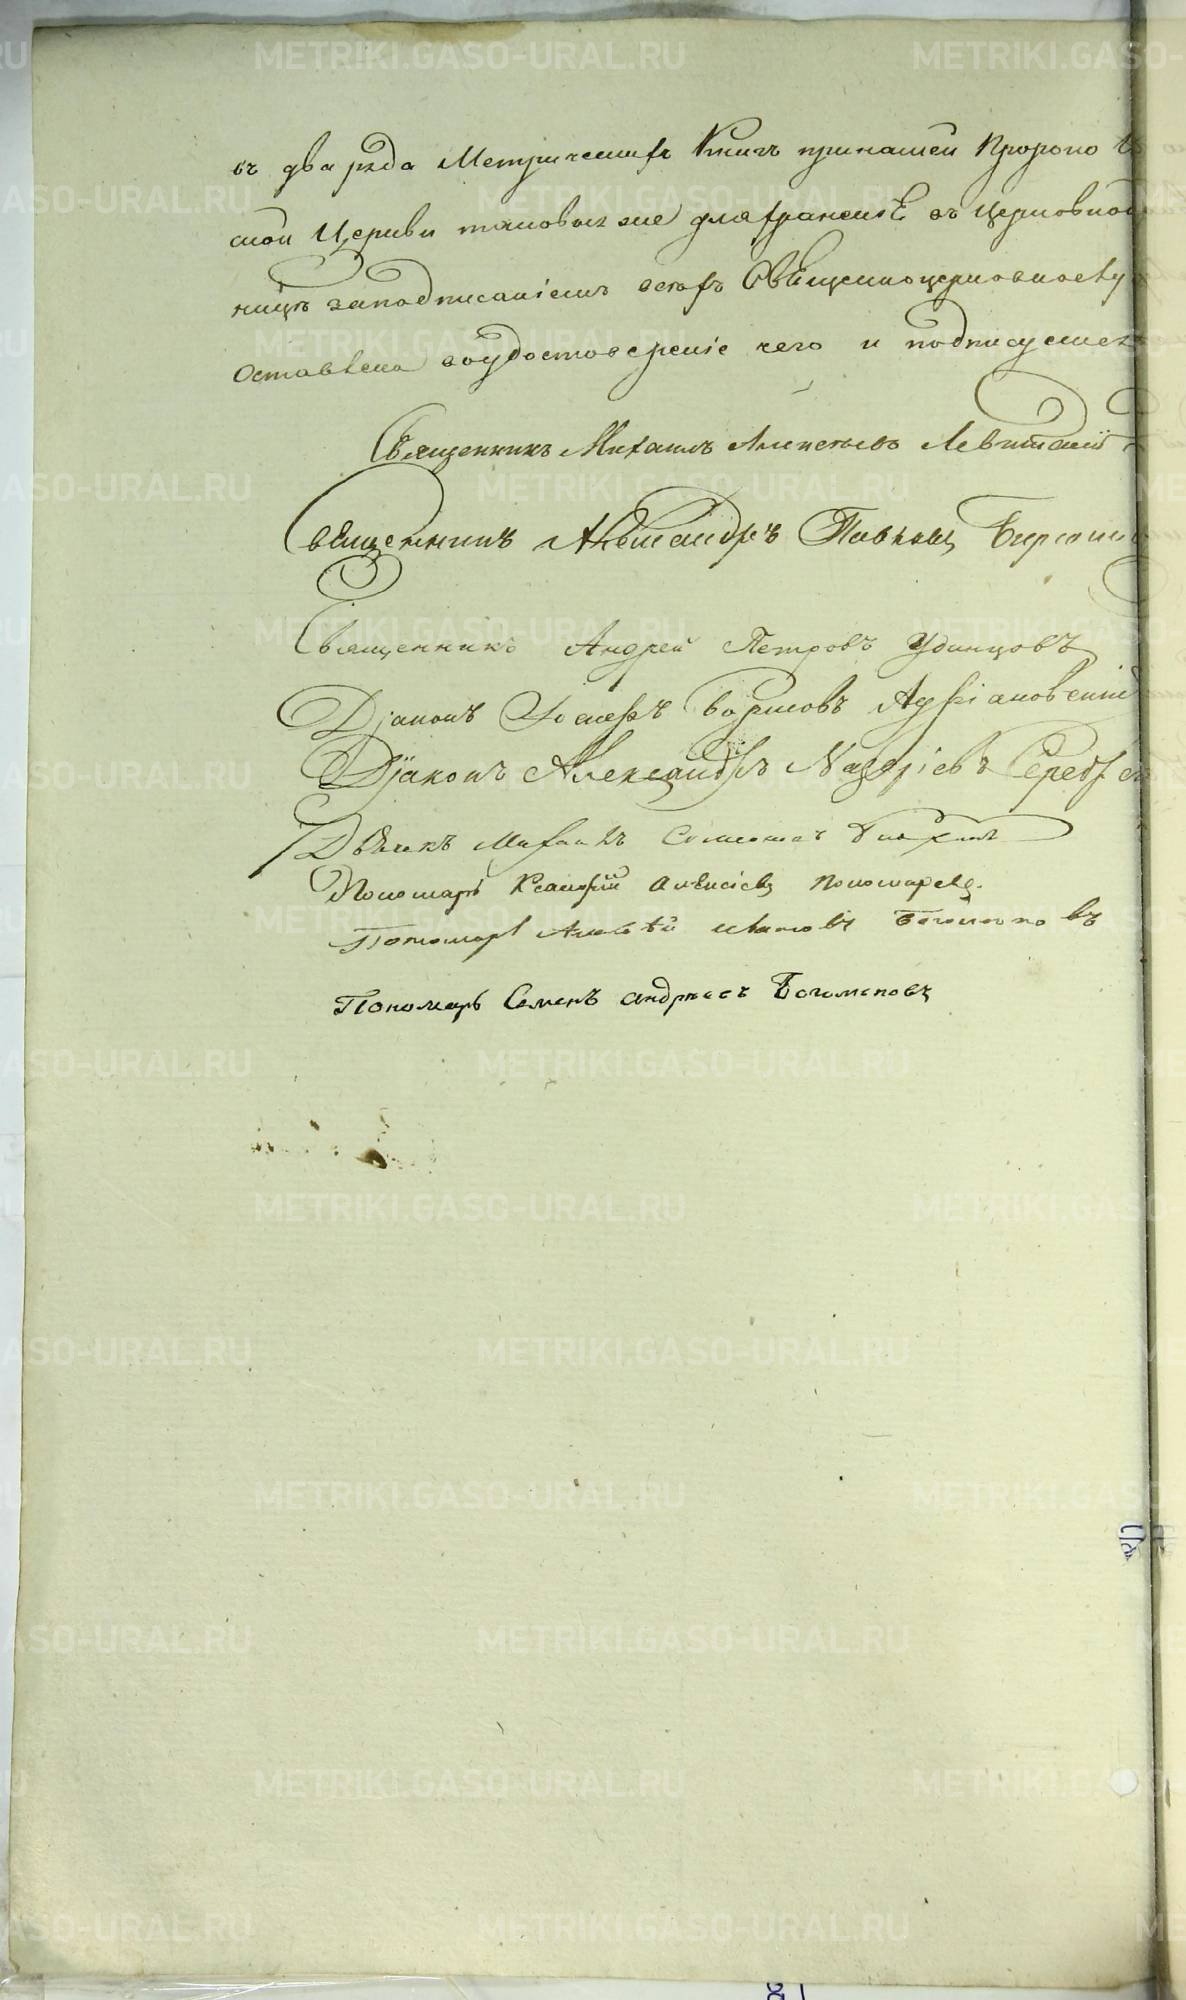 въ два ряда Метрическихъ Книгъ принашей Пророко
ской Церкви таковыя же дляхраненіѣ въ Церковной
ницѣ заподписаніемъ всехъ Свѣщенноцерковнослу
Оставлена воудостоверѣніе чего и подписуемся
Священникъ Михаилъ Алексѣевъ Левитскій
Свѣщенникъ Александръ Павловъ
Священникъ Андрей Петровъ Удинцовъ
Діаконъ Іосифъ Борисовъ Адріановскій
Діаконъ Александръ Назаріевъ Серебр
Дьячекъ Михаилъ
Пономарь Ксанфій Алексіевъ Пономаревъ.
Пономарь Алексѣй Ивановъ Богомоловъ
Пономарь Семенъ андреевъ Богомоловъ
METRIKI.GASO-URAL.RU